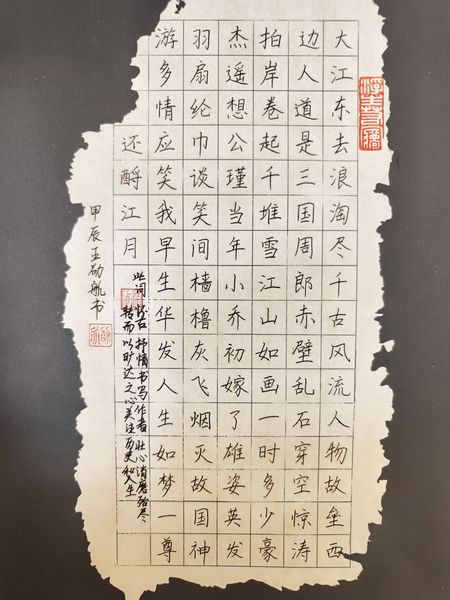 大江东去浪淘尽千古风流人物故垒西
边人道是三国周郎赤壁乱石穿空惊涛
拍岸卷起千堆雪江山如画一时多少豪
杰遥想公瑾当年小乔初嫁了雄姿英发
羽扇纶巾谈笑间樯橹灰飞烟灭故国神
游多情应笑我早生华发人生如梦一尊
还酹江月
此词怀古抒情书写作者壮心消磨殆尽
转而以旷达之心关注历史和人生
甲辰王劭航书